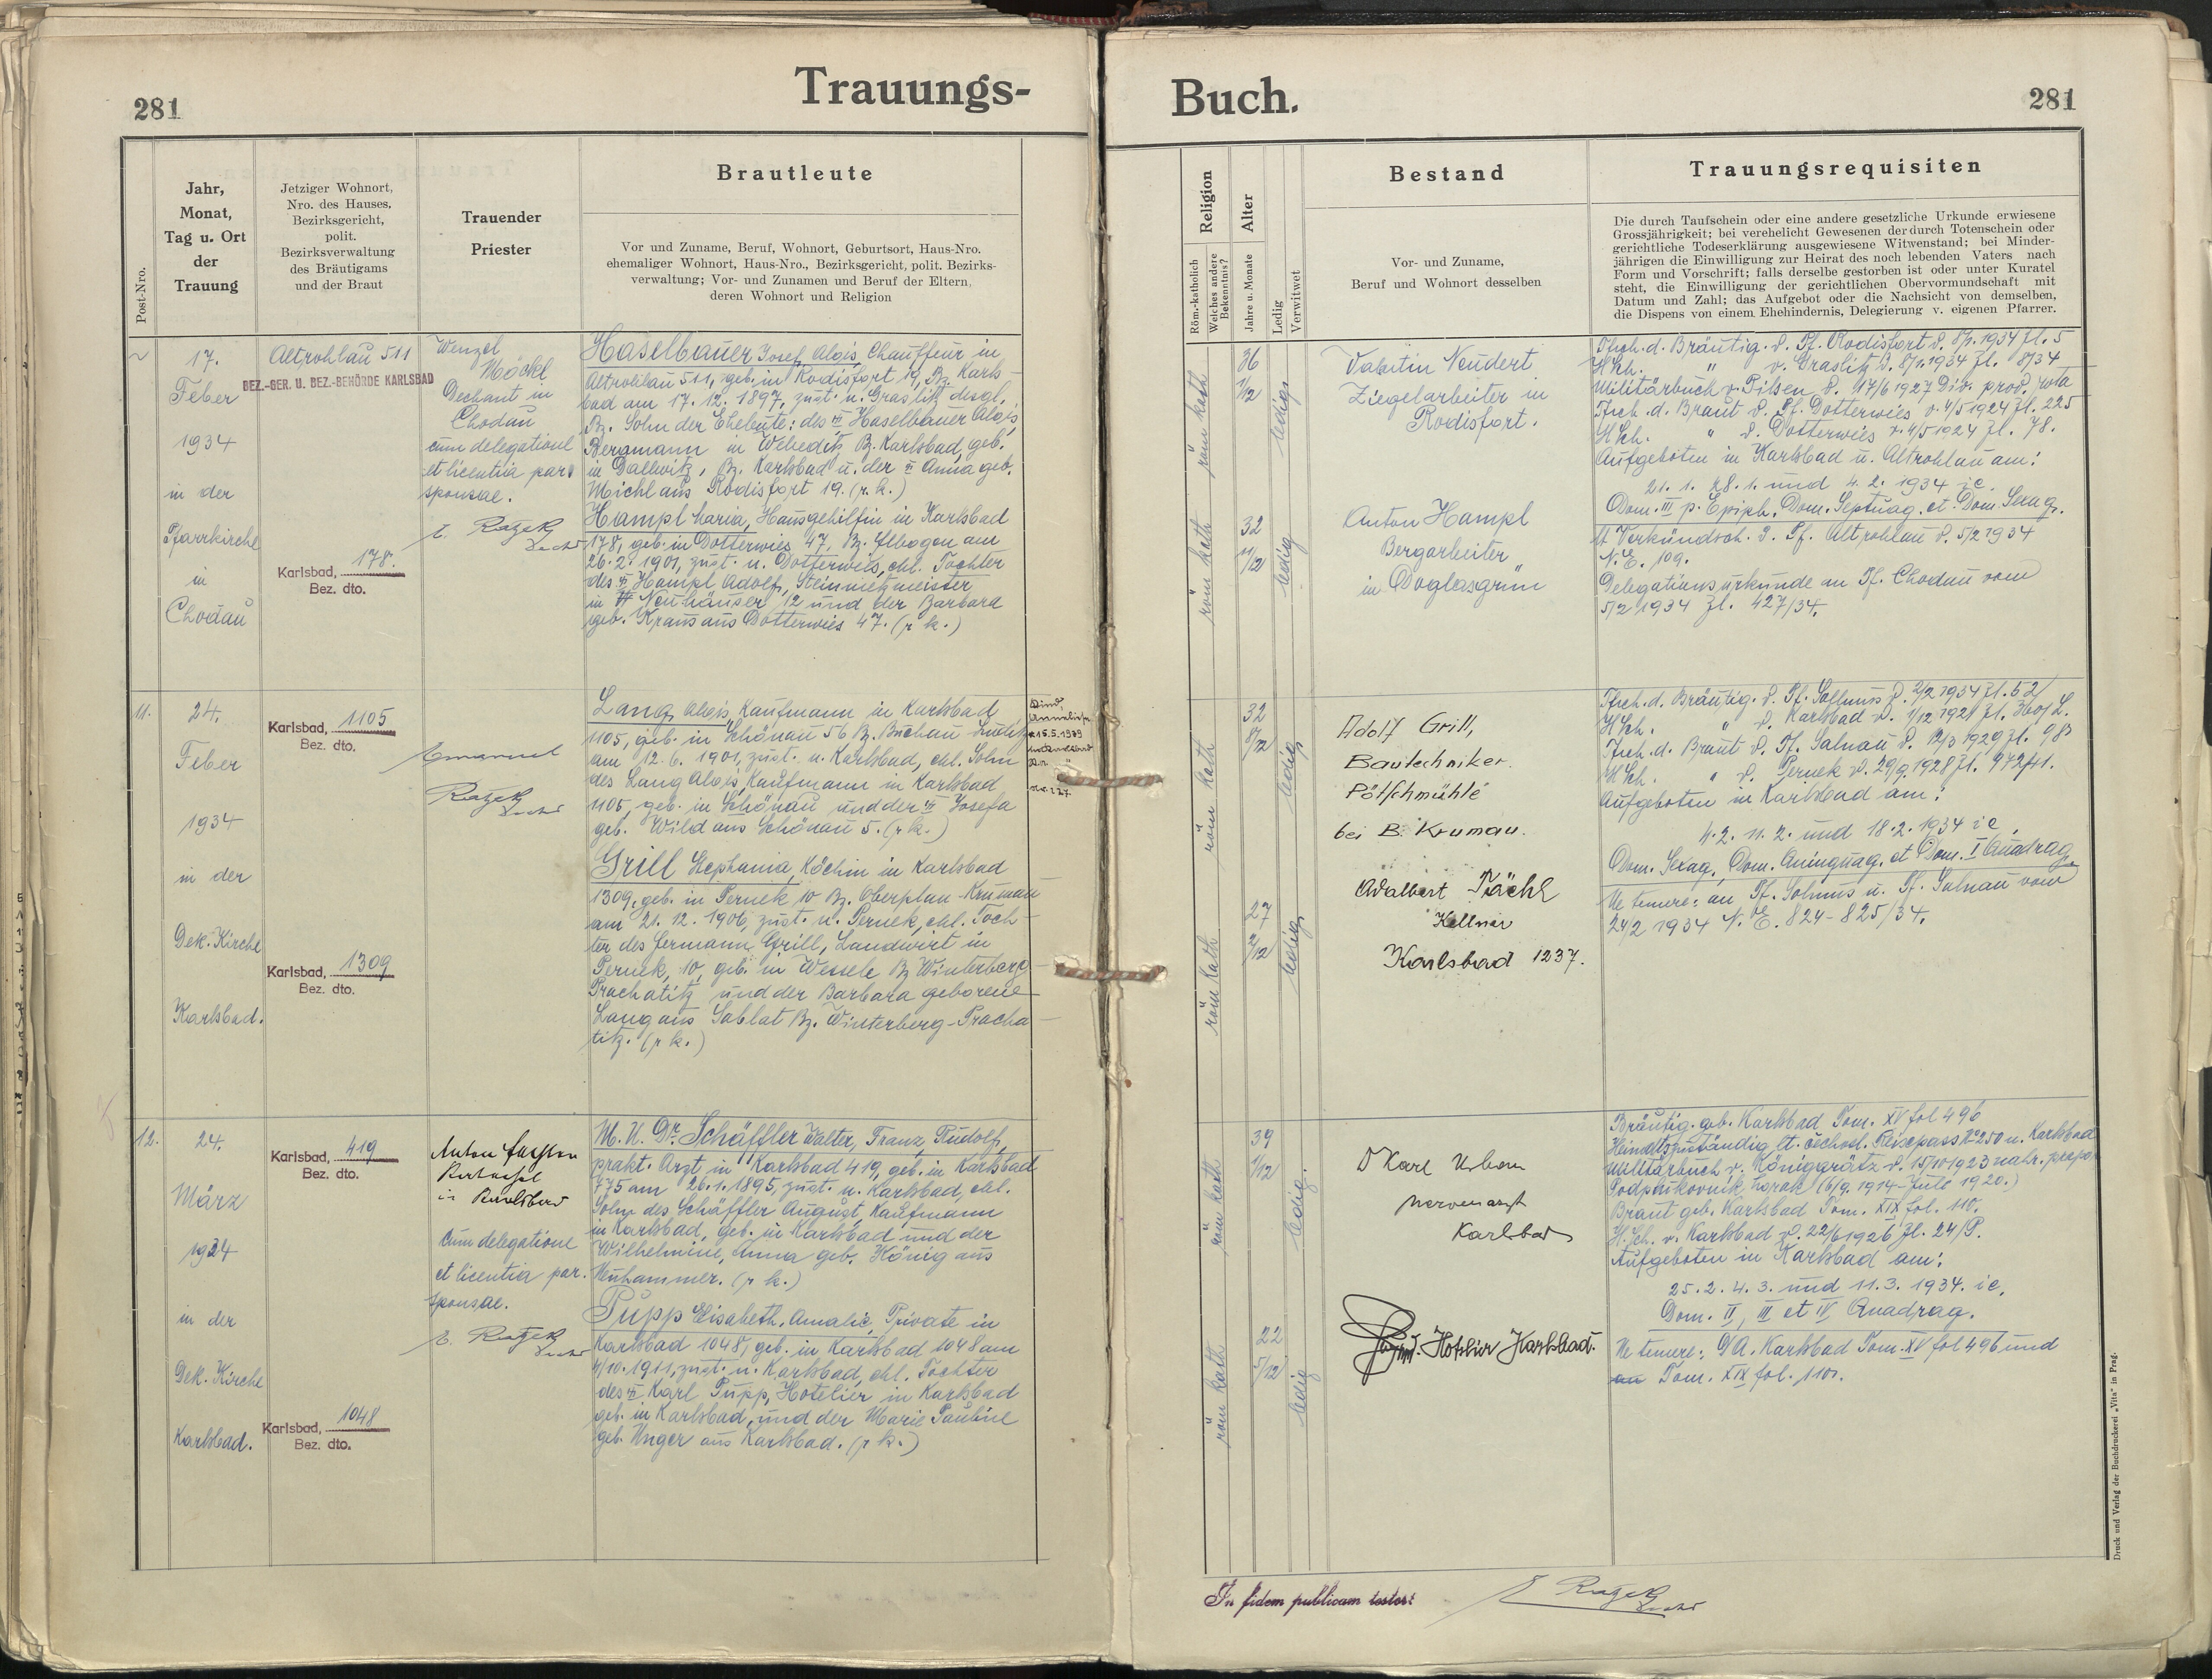 281
Trauungs-
Post-Nro.
Jahr,
Monat,
Tag u. Ort
der
Trauung
Jetziger Wohnort,
Nro. des Hauses,
Bezirksgericht,
polit.
Bezirksverwaltung
des Bräutigams
und der Braut
Trauender
Priester
Brautleute
Vor und Zuname, Beruf, Wohnort, Geburtsort, Haus-Nro.
ehemaliger Wohnort, Haus-Nro., Bezirksgericht, polit. Bezirks-
verwaltung; Vor- und Zunamen und Beruf der Eltern,
deren Wohnort und Religion
17.
Feber
1934
in der
Pfarrkirche
in
Chodau
Altrohlau 511
BEZ.-GER. U. BEZ.-BEHÖRDE KARLSBAD
Karlsbad, 178.
Bez. dto.
Wenzel
Möckl
Dechant in
Chodau
cum delegatione
et licentia par.
sponsae.
E. Razek
Haselbauer Josef Alois Chauffeur in
Altrohlau 511, geb. in Rodisfort 19, Bz. Karls-
bad am 17. 12. 1897, zust. n. Graslitz desgl.
Bz. Sohn der Eheleute: des Haselbauer Alois,
Bergmann in Weheditz Bz. Karlsbad, geb.
in Dallwitz, Bz. Karlsbad u. der Anna geb.
Michl aus Rodisfort 19. (r. k.)
Hampl Maria, Hausgehilfin in Karlsbad
178, geb. in Dotterwies 47, Bz. Elbogen am
26. 2. 1901, zust. n. Dotterwies, ehl. Tochter
des Hampl Adolf, Steinmetzmeister
in Neuhäuser 12 und der Barbara
geb. Kraus aus Dotterwies 47. (r. k.)
11.
24.
Feber
1934
in der
Dek. Kirche
Karlsbad.
Karlsbad, 1105
Bez. dto.
Karlsbad, 1309
Bez. dto.
Emanuel
Razek
Lang Alois Kaufmann in Karlsbad
1105, geb. in Schönau 56 Bz. Buchau Luditz
am 12. 6. 1901, zust. n. Karlsbad, ehl. Sohn
des Lang Alois, Kaufmann in Karlsbad
1105, geb. in Schönau und der Josefa
geb. Wild aus Schönau 5. (r. k.)
Grill Stephania, Köchin in Karlsbad
1309, geb. in Pernek 10 Bz. Oberplan-Krumau
am 21. 12. 1906, zust. n. Pernek, ehl. Toch-
ter des Hermann Grill, Landwirt in
Pernek, 10, geb. in Wessele Bz Winterberg-
Prachatitz und der Barbara geborene
Lang aus Sablat Bz. Winterberg-Pracha
titz. (r k.)
12.
24.
März
1934
in der
Dek. Kirche
Karlsbad.
Karlsbad, 419
Bez. dto.
Karlsbad, 1048
Bez. dto.
Anton
cum delegatione
et licentia par.
sponsae.
E. Razek
M. U. Dr. Schäffler Walter, Franz, Rudolf,
prakt. Arzt in Karlsbad 419, geb. in Karlsbad
775 am 26. 1. 1895, zust. n. Karlsbad, ehl.
Sohn des Schäffler August, Kaufmann
in Karlsbad, geb. in Karlsbad und der
Wilhelmine, Anna geb. König aus
Neuhammer. (r k.)
Pupp Elisabeth, Amalie, Private in
Karlsbad 1048, geb. in Karlsbad 1048 am
4/10. 1911, zust. n. Karlsbad, ehl. Tochter
des Karl Pupp, Hotelier in Karlsbad
geb. in Karlsbad, und der Marie Pauline
geb. Unger aus Karlsbad. (r k.)
Buch.
281
Religion
Röm.-katholich
Welches andere
Bekenntnis?
Alter
Jahre u. Monate
Ledig
Verwitwet
Bestand
Vor- und Zuname,
Beruf und Wohnort desselben
Trauungsrequisiten
Die durch Taufschein oder eine andere gesetzliche Urkunde erwiesene
Grossjährigkeit; bei verehelicht Gewesenen der durch Totenschein oder
gerichtliche Todeserklärung ausgewiesene Witwenstand; bei Minder-
jährigen die Einwilligung zur Heirat des noch lebenden Vaters nach
Form und Vorschrift; falls derselbe gestorben ist oder unter Kuratel
steht, die Einwilligung der gerichtlichen Obervormundschaft mit
Datum und Zahl; das Aufgebot oder die Nachsicht von demselben,
die Dispens von einem Ehehindernis, Delegierung v. eigenen Pfarrer.
röm kath
36
1/12
ledig
Valentin Neudert
Ziegelarbeiter in
Rodisfort.
röm kath
32
11/12
ledig
Anton Hampl
Bergarbeiter
in Doglasgrün
Tfsch. d. Bräutig. d. Pf. Rodisfort d. 8/1. 1934 Zl. 5
HSch. " v. Graslitz d. 8/1. 1934 Zl. 8/34
Militärbuch v. Pilsen d. 17/6 1927 Div. prov. rota
Tfsch. d. Braut d. Pf. Dotterwies v. 4/5 1924 Zl. 225
HSch. " d. Dotterwies v. 4/5 1924 Zl. 78.
Aufgeboten in Karlsbad u. Altrohlau am:
21. 1. 28. 1. und 4. 2. 1934 ie.
Dom. III p. Epiph. Dom. Septuag. et Dom. Sexag.
Verkündsch. d. Pf. Altrohlau d. 5/2 1934
N. E. 109.
Delegationsurkunde an Pf. Chodau vom
5/2 1934 Zl. 427/34.
röm kath
32
8/12
ledig
Adolf Grill,
Bautechniker.
Pötschmühle
bei B. Krumau.
röm kath
27
2/12
ledig
Adalbert Pächl
Kellner
Karlsbad 1237.
Aufgeboten in Karlsbad am:
4. 2. 11. 2. und 18. 2. 1934 ie.
Dom. Sexag. Dom. Quinquag. et Dom. I Quadrag
Ne temere: an Pf. Sollmus u. Pf. Salnau vom
24/2 1934 N. E. 824-825/34.
röm kath
39
1/12
ledig.
Dr Karl Urban
Nervenarzt
Karlsbad
röm kath
22
5/12
ledig
Hotelier Karlsbad.
Bräutig. geb. Karlsbad Tom. XV fol 496
Braut geb. Karlsbad Tom. XIX fol. 110.
H. Sch. v. Karlsbad d. 22/6 1926 Zl. 24/P.
Aufgeboten in Karlsbad am:
25. 2. 4. 3. und 11. 3. 1934. ie.
Dom. II, III et IV Quadrag.
Ne temere: D/A. Karlsbad Tom. XV fol 496 und
Tom. XIX fol. 110.
In fidem publicam testor:
E Razek
Druck und Verlag der Buchdruckerei „Vita" in Prag.